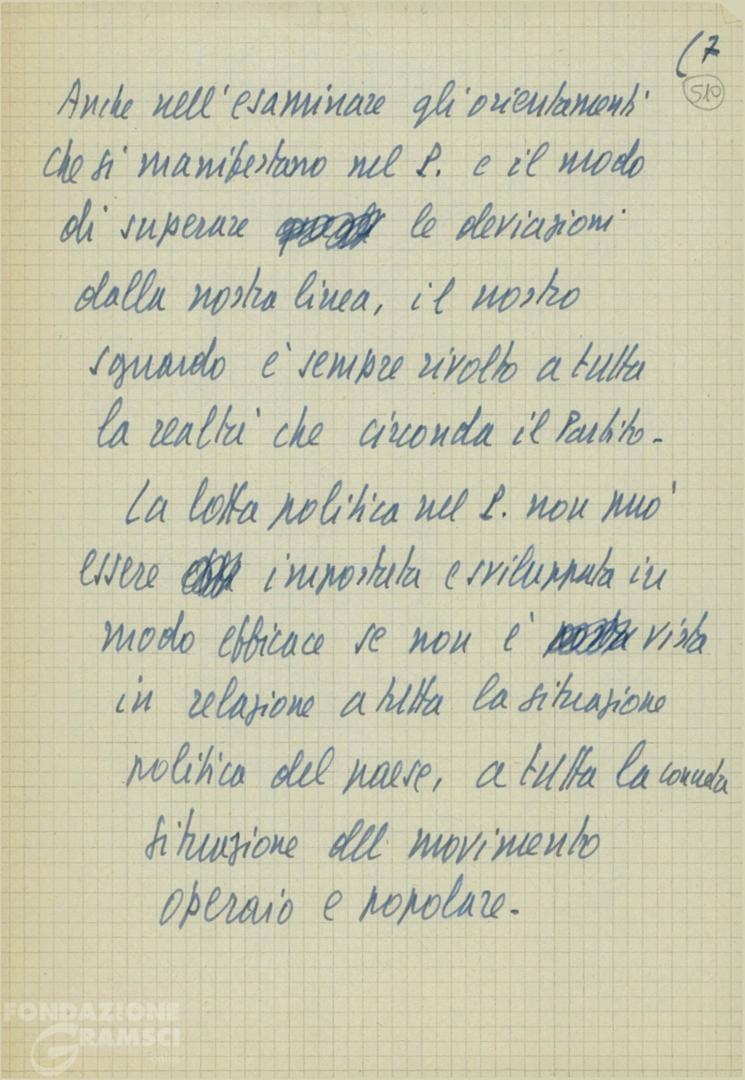 (7
510
Anche nell'esaminare gli orientamenti
che si manifestano nel P. e il modo
di superare le deviazioni
dalla nostra linea, il nostro
sguardo è sempre rivolto a tutta
la realtà che circonda il Partito.
La lotta politica nel P. non può
essere impostata e sviluppata in
modo efficace se non è vista
in relazione a tutta la situazione
politica del paese, a tutta la concreta
situazione del movimento
operaio e popolare.
FONDAZIONE
GRAMSCI